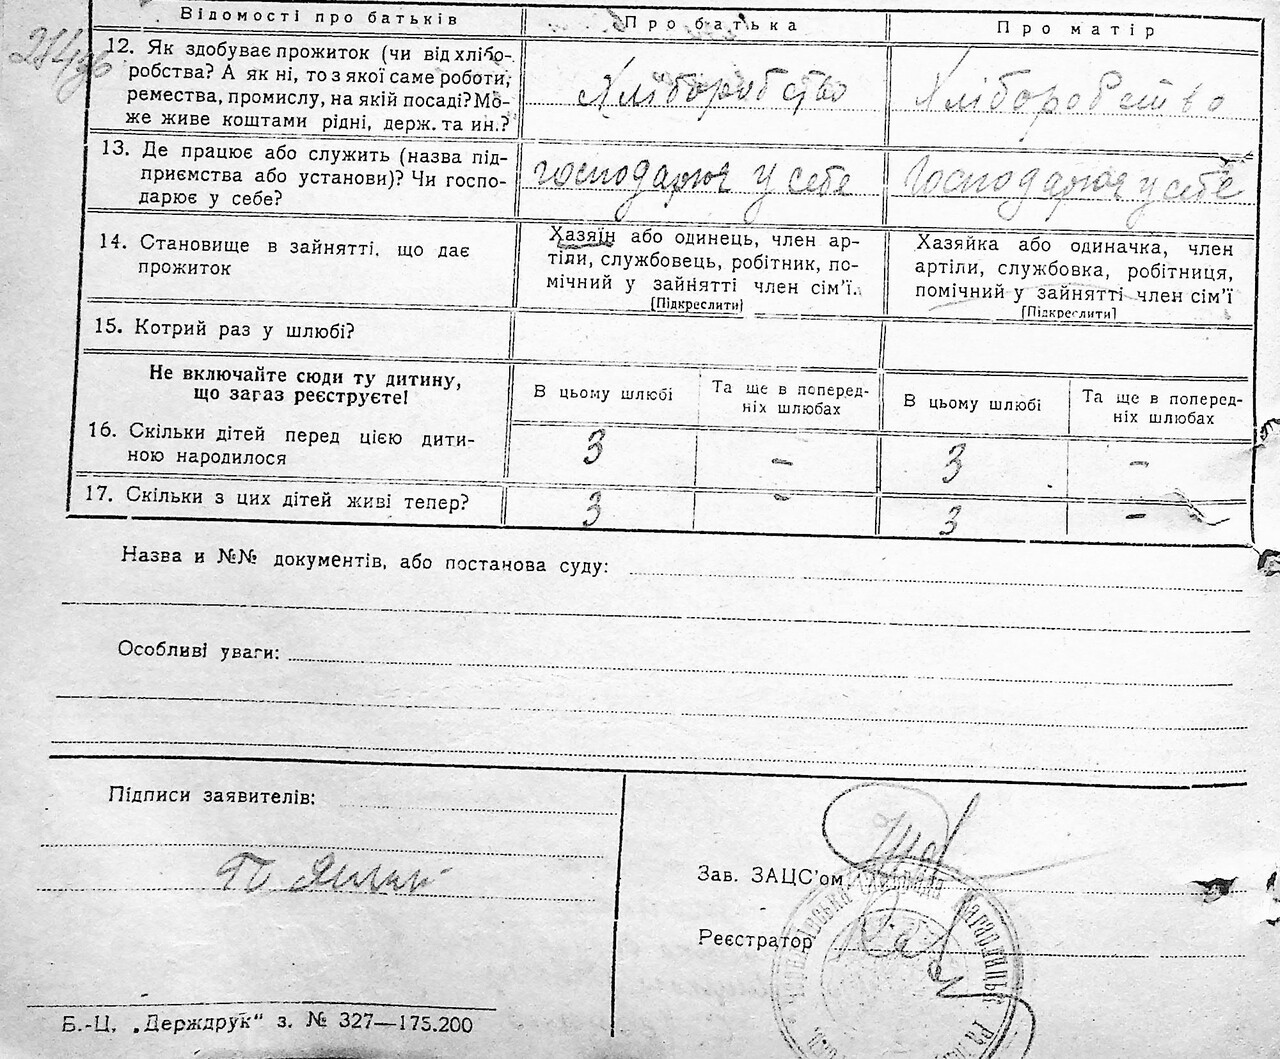 Відомості про батьків Про батька Про матір
12. Як здобуває прожиток (чи від хлібо-
робства? А як ні, то з якої саме роботи,
ремества, промислу, на якій посаді? Мо-
же живе коштами рідні, держ. та ин.?
Хліборобство Хліборобство
13. Де працює або служить (назва під-
приємства або установи)? Чи госпо-
дарює у себе?
господарює у себе Господарює у себе
14. Становище в зайнятті, що дає
прожиток
Хазяїн або одинець, член ар-
тіли, службовець, робітник, по-
мічний у зайнятті член сім'ї.
[Підкреслити]
Хазяйка або одиначка, член
артіли, службовка, робітниця,
помічний у зайнятті член сім'ї
[Підкреслити]
15. Котрий раз у шлюбі?
Не включайте сюди ту дитину,
що загаз реєструєте!
В цьому шлюбі
Та ще в поперед-
ніх шлюбах
В цьому шлюбі
Та ще в поперед-
ніх шлюбах
16. Скільки дітей перед цією дити-
ною народилося
3 - 3 -
17. Скільки з цих дітей живі тепер?
3 - 3 -
Назва и №№ документів, або постанова суду:
Особливі уваги:
Підписи заявителів:
Зав. ЗАЦС'ом
Реєстратор
Б.-Ц. „Держдрук" з. № 327—175.200